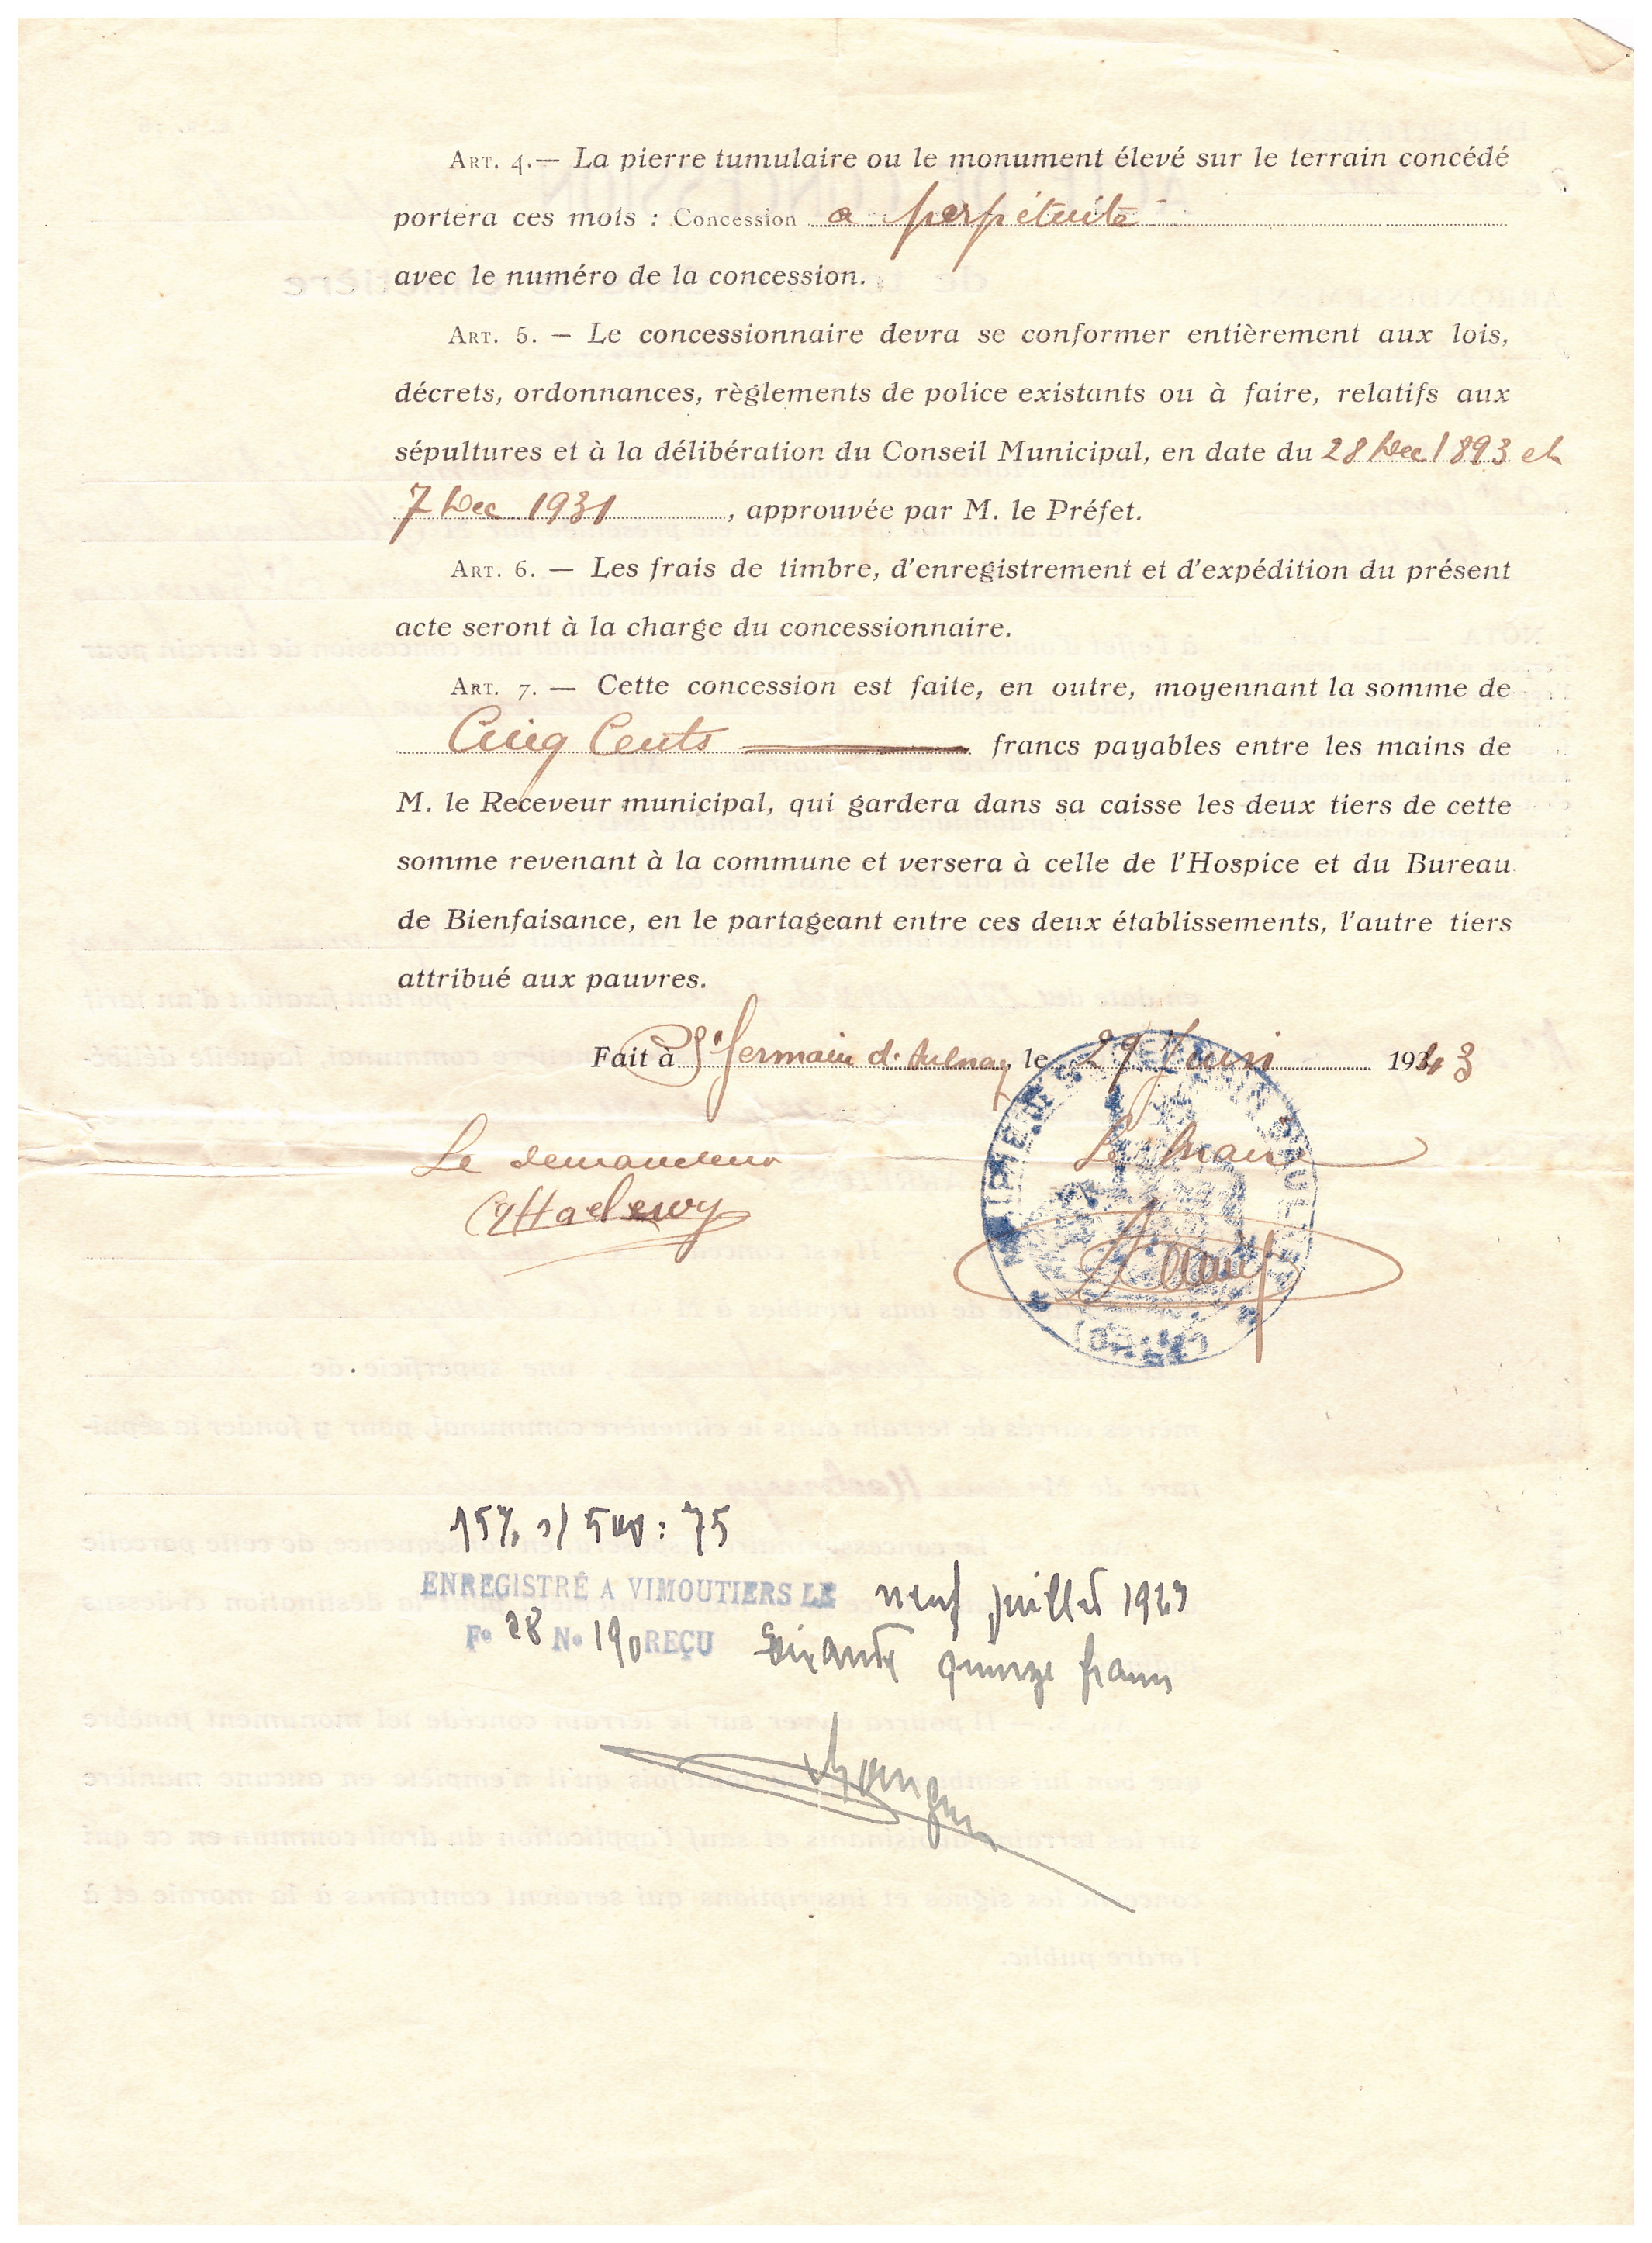 ART. 4.— La pierre tumulaire ou le monument élevé sur le terrain concédé
portera ces mots : Concession a perpétuité
avec le numéro de la concession.
ART. 5. — Le concessionnaire devra se conformer entièrement aux lois,
décrets, ordonnances, règlements de police existants ou à faire, relatifs aux
sépultures et à la délibération du Conseil Municipal, en date du 28 Dec 1893 et
7 Dec 1931, approuvée par M. le Préfet.
ART. 6. — Les frais de timbre, d'enregistrement et d'expédition du présent
acte seront à la charge du concessionnaire.
ART. 7. — Cette concession est faite, en outre, moyennant la somme de
Cinq Cents francs payables entre les mains de
M. le Receveur municipal, qui gardera dans sa caisse les deux tiers de cette
somme revenant à la commune et versera à celle de l'Hospice et du Bureau
de Bienfaisance, en le partageant entre ces deux établissements, l'autre tiers
attribué aux pauvres.
Fait à St Germain d'Aulnay, le 29 Juin 1943
Le demandeur Le Maire
15% s/ 500 : 75
ENREGISTRÉ A VIMOUTIERS LE neuf juillet 1943
Fo 28 No 190 REÇU Soixante quinze francs